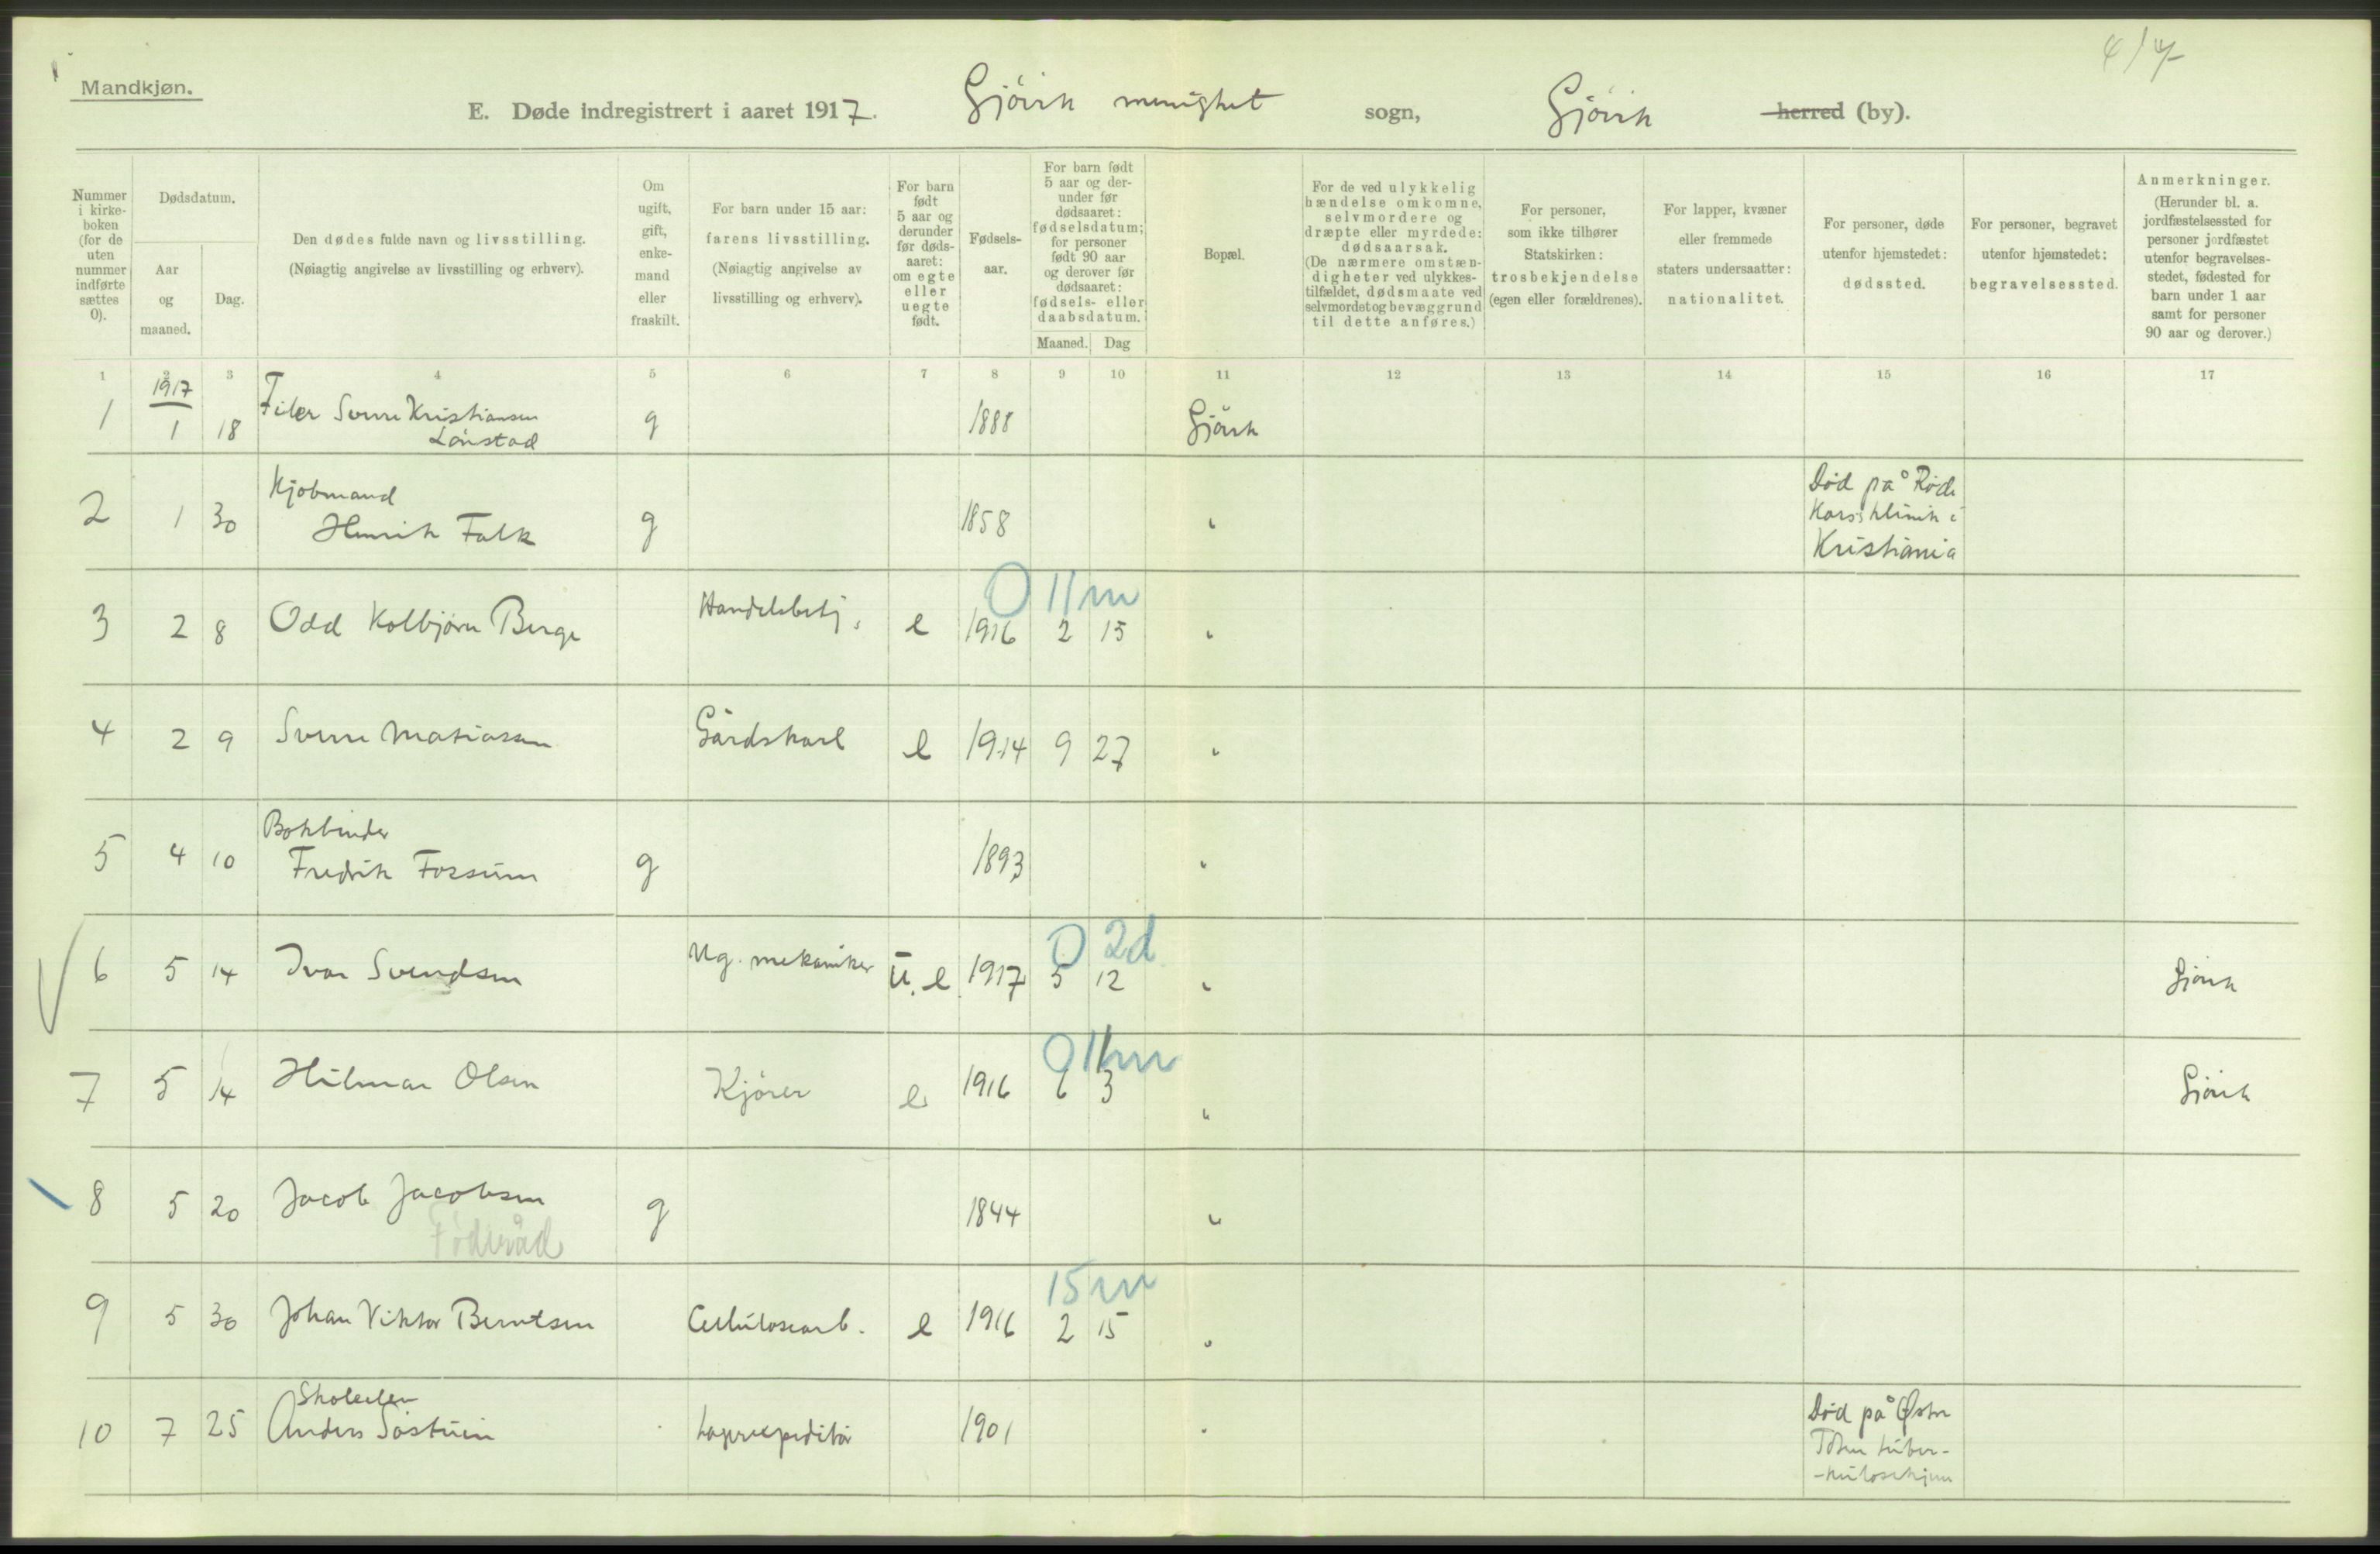 Mandkjøn.
4/4
E. Døde indregistrert i aaret 1917. Gjövik menighet sogn, Gjövik herred (by).
Nummer i kirkeboken (for de uten nummer indførte sættes 0).
Dødsdatum.
Aar og maaned.
Dag.
Den dødes fulde navn og livsstilling. (Nøiagtig angivelse av livsstilling og erhverv).
Om ugift, gift, enkemand eller fraskilt.
For barn under 15 aar: farens livsstilling. (Nøiagtig angivelse av livsstilling og erhverv).
For barn født 5 aar og derunder før dødsaaret: om egte eller uegte født.
Fødselsaar.
For barn født 5 aar og derunder før dødsaaret: fødselsdatum; for personer født 90 aar og derover før dødsaaret: fødsels- eller daabsdatum.
Maaned. Dag
Bopæl.
For de ved ulykkelig hændelse omkomne, selvmordere og dræpte eller myrdede: dødsaarsak. (De nærmere omstændigheter ved ulykkestilfældet, dødsmaate ved selvmordet og bevæggrund til dette anføres.)
For personer, som ikke tilhører Statskirken: trosbekjendelse (egen eller forældrenes).
For lapper, kvæner eller fremmede staters undersaatter: nationalitet.
For personer, døde utenfor hjemstedet: dødssted.
For personer, begravet utenfor hjemstedet: begravelsessted.
Anmerkninger. (Herunder bl. a. jordfæstelsessted for personer jordfæstet utenfor begravelsesstedet, fødested for barn under 1 aar samt for personer 90 aar og derover.)
1 2 3 4 5 6 7 8 9 10 11 12 13 14 15 16 17
1917
1 1 18 Filer Sverre Kristiansen g 1888 Gjövik
Lönstad
2 1 30 Kjøbmand g 1858 " Död på Röde
Henrik Falk Kors's klinik i
Kristiania
0 11 m
3 2 8 Odd Kolbjørn Berge Handelsbetj. e 1916 2 15 "
4 2 9 Sverre Matiassen Gårdskarl e 1914 9 27 "
5 4 10 Bokbinder g 1893 "
Fredrik Fossum
0 2d
6 5 14 Ivar Svendsen Ug. mekaniker u. e 1917 5 12 " Gjövik
0 11m
7 5 14 Hilmar Olsen Kjörer e 1916 6 3 " Gjövik
8 5 20 Jacob Jacobsen g 1844 "
Föderåd
15 m
9 5 30 Johan Viktor Berntsen Cellulosearb. e 1916 2 15 "
10 7 25 Skoleelev Lagerexpeditör 1901 " Död på Østre
Anders Sôstuen Toten tuber-
-kulosehjem